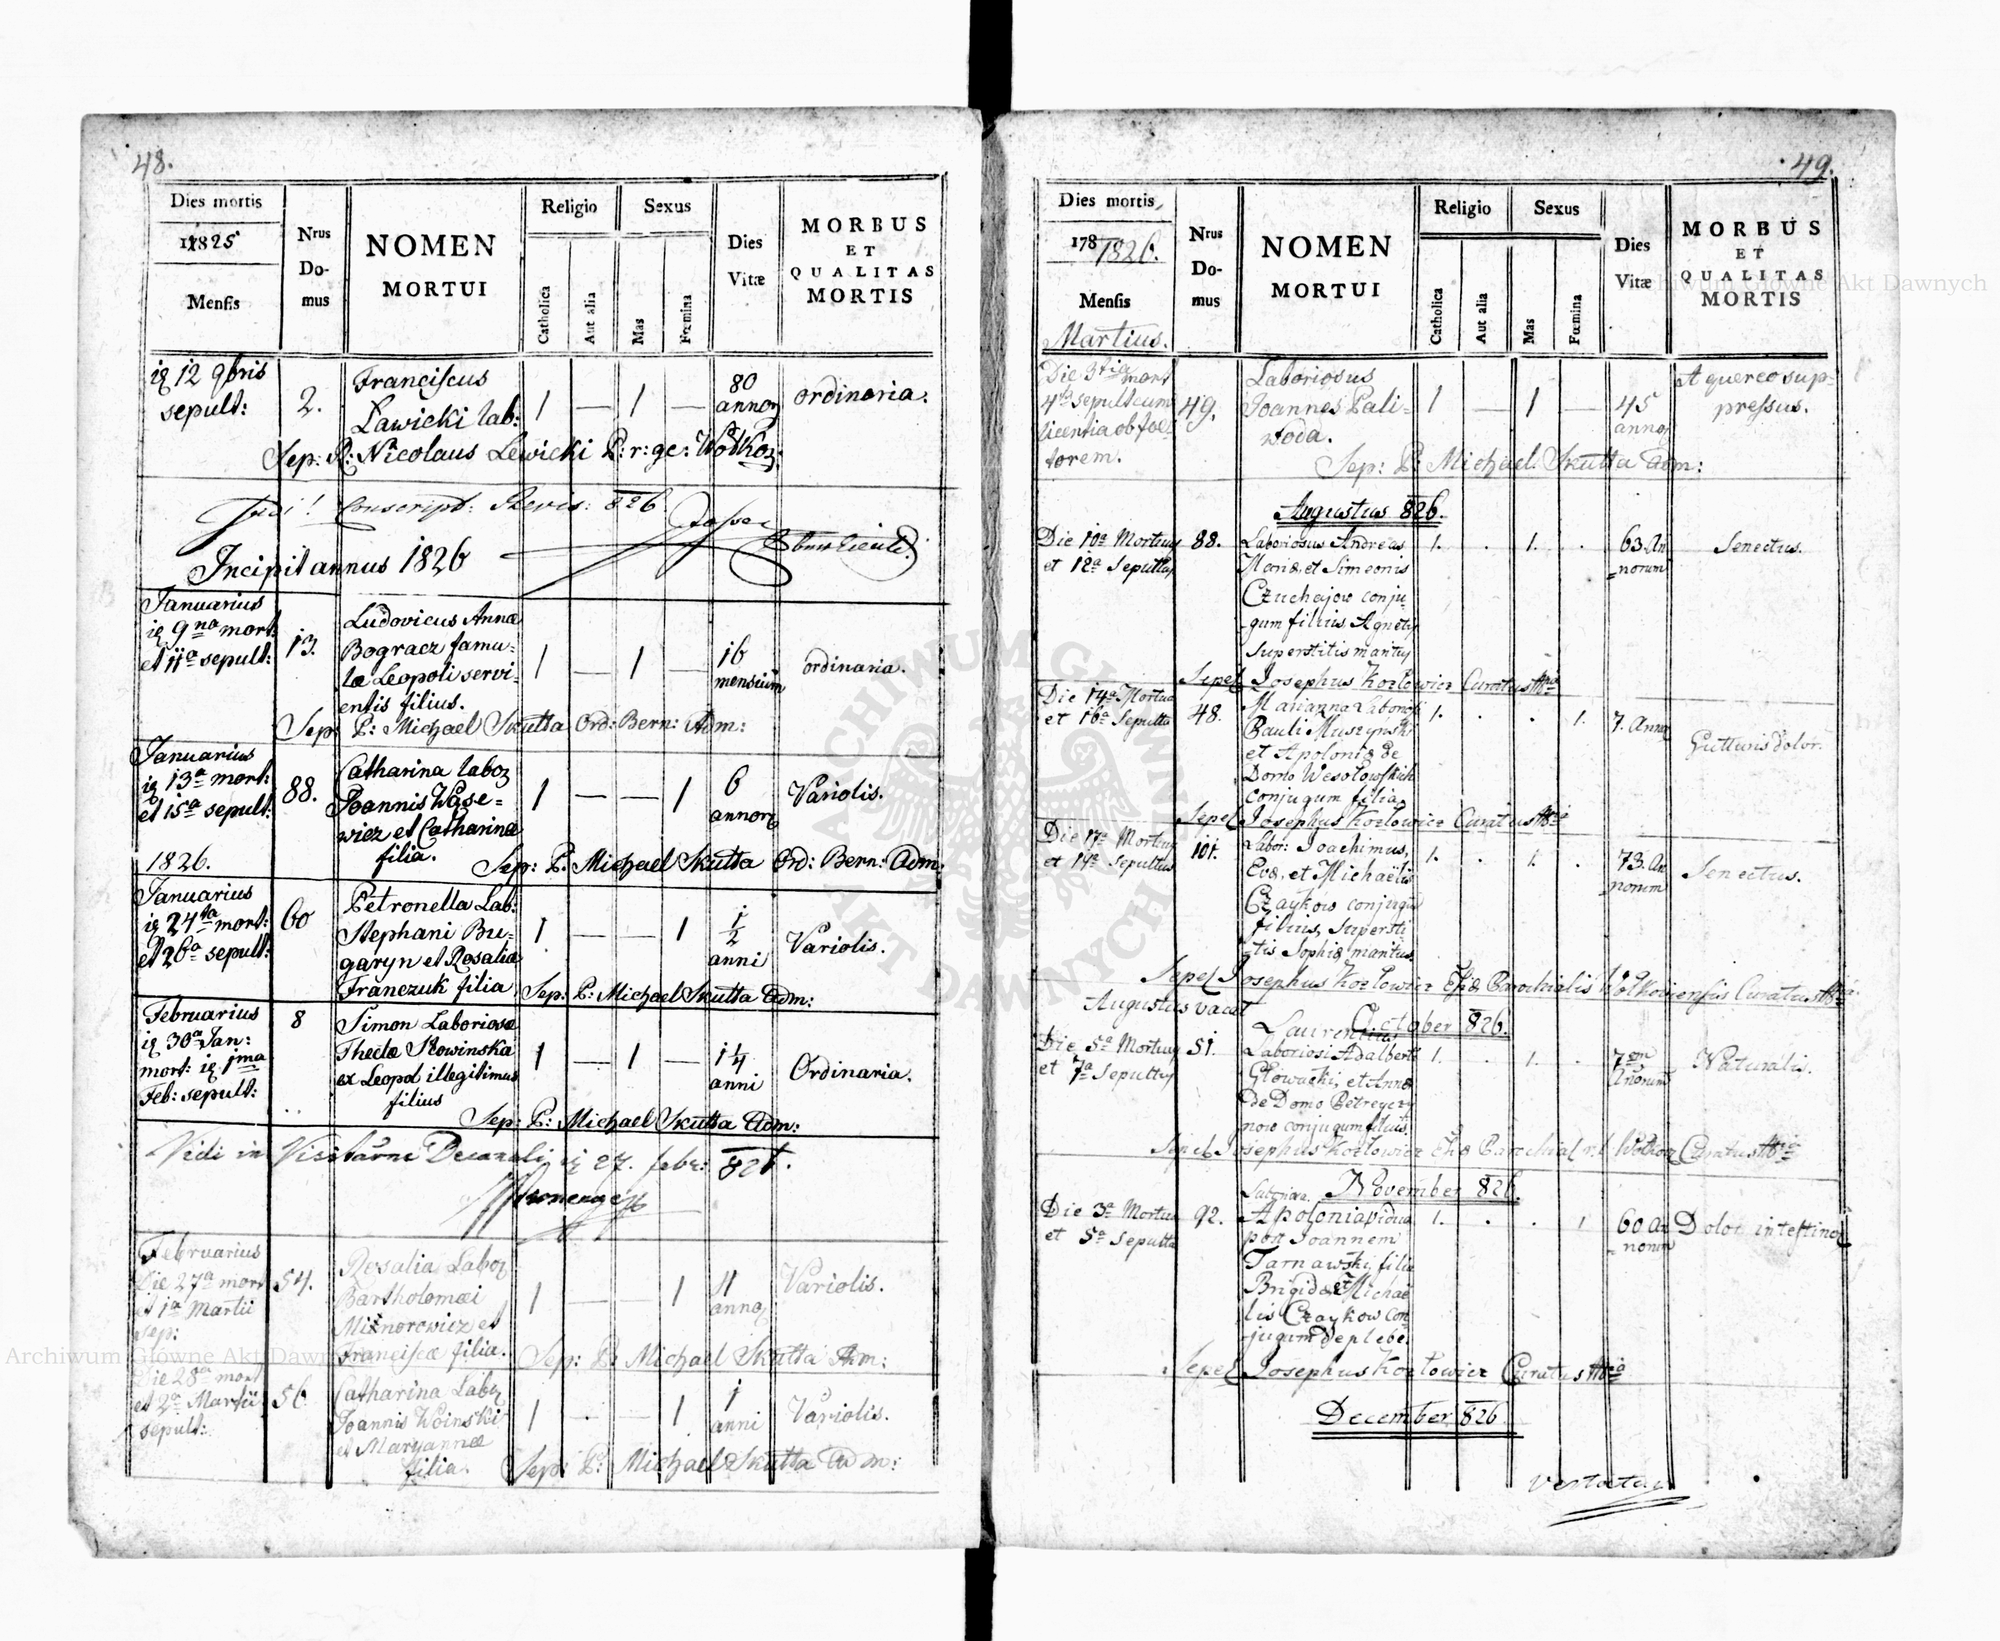 48.
Dies mortis
1825
Mensis
Nrus
Do-
mus
NOMEN
MORTUI
Religio
Catholica
Aut alia
Sexus
Mas
Fœmina
Dies
Vitæ
MORBUS
ET
QUALITAS
MORTIS
12 9bris
sepult:
2.
Franciscus
Lawicki lab:
1 — 1 —
80
annor
ordinaria.
Sep: P: Nicolaus Lewicki P: r: gr: Wołkow:
Vidi! Conscript: Revis: 826
Incipit annus 1826
Januarius
9na mort:
et 11a sepult:
13.
Ludovicus Annæ
Bogracz famu-
læ Leopoli servi-
entis filius.
1 — 1 —
16
mensium
ordinaria.
Sep: P: Michael Skutta Ord: Bern: Adm:
Januarius
13a mort:
et 15a sepult:
88.
Catharina labor
Joannis Wąse-
wicz et Catharinæ
filia.
1 — — 1
6
annor
Variolis.
Sep: P: Michael Skutta Ord: Bern: Adm:
1826.
Januarius
24ta mort:
et 26a sepult:
60
Petronella Lab:
Stephani Bu-
garyn et Rosaliæ
Franczuk filia
1 — — 1
1/2
anni
Variolis.
Sep: P: Michael Skutta Adm:
Februarius
30a Jan:
mort: 1ma
Feb: sepult:
8
Simon Laboriosæ
Theclæ Słowinska
ex Leopol illegitimus
filius
1 — 1 —
1 1/4
anni
Ordinaria.
Sep: P: Michael Skutta Adm:
Vidi in Decanali 27. febr: 826.
Februarius
Die 27a mort
et 1a Martii
sep:
54.
Rosalia Labor
Bartholomæi
Misnorowicz et
Franciscæ filia.
1 — — 1
annor
Variolis.
Sep: P: Michael Skutta Adm:
Die 28a mort
et 2a Martii
sepult:
56
Catharina Labor
Joannis Woinski
et Maryannæ
filia.
1 — 1
1
anni
Variolis.
Sep: P: Michael Skutta Adm:
49.
Dies mortis
178 1826.
Mensis
Martius.
Nrus
Do-
mus
NOMEN
MORTUI
Religio
Catholica
Aut alia
Sexus
Mas
Fœmina
Dies
Vitæ
MORBUS
ET
QUALITAS
MORTIS
Die 3tia mort
4ta sepult cum
licentia ob fœ-
torem.
49.
Laboriosus
Joannes Pali-
woda.
1 — 1 —
45
annor
A quercu sup-
pressus.
Sep: P: Michael Skutta Adm:
Augustus 826.
Die 10a Mortuus
et 12a Sepultus
88.
Laboriosus Andreas
Mariæ et Simeonis
Czuchajow conju-
gum filius Agnetis
Superstitis maritus
1. . 1. .
63 An
norum
Senectus.
Sepel Josephus Kozłowicz Curatus
Die 14a Mortua
et 16a Sepulta
48.
Marianna Laborios
Pauli Muszynski
et Apoloniæ de
Domo Wesołowskich
conjugum filia
1. . . 1.
7. Annor
Gutturis dolor.
Sepel Josephus Kozłowicz Curatus
Die 17a Mortuus
et 19a Sepultus
101.
Labor: Joachimus,
Evæ, et Michaelis
Czaykow conjugum
filius, Supersti
tis Sophiæ maritus
1. . 1. .
73. An
norum
Senectus.
Sepel Josephus Kozłowicz Parochialis Wołkoviensis Curatus
Augustus vacat
October 826.
Die 5a Mortuus
et 7a Sepultus
51.
Laurentius
Laboriosi Adalberti
Głowacki, et Annæ
de Domo Petreycz
now conjugum filius.
1. . 1. .
7em
Annorum
Naturalis.
Sepel Josephus Kozłowicz Parochial Wołkow Curatus
November 826.
Die 3a Mortua
et 5a Sepulta
92.
Apolonia vidua
post Joannem
Tarnawski, filia
Brigidæ et Michae
lis Czaykow con
jugum de plebe.
1. . . 1
60 an
norum
Dolor intestinor
Sepel Josephus Kozłowicz Curatus
December 826
Vertatur
Archiwum Główne Akt Dawnych
Archiwum Główne Akt Dawnych
ARCHIWUM GŁÓWNE AKT DAWNYCH